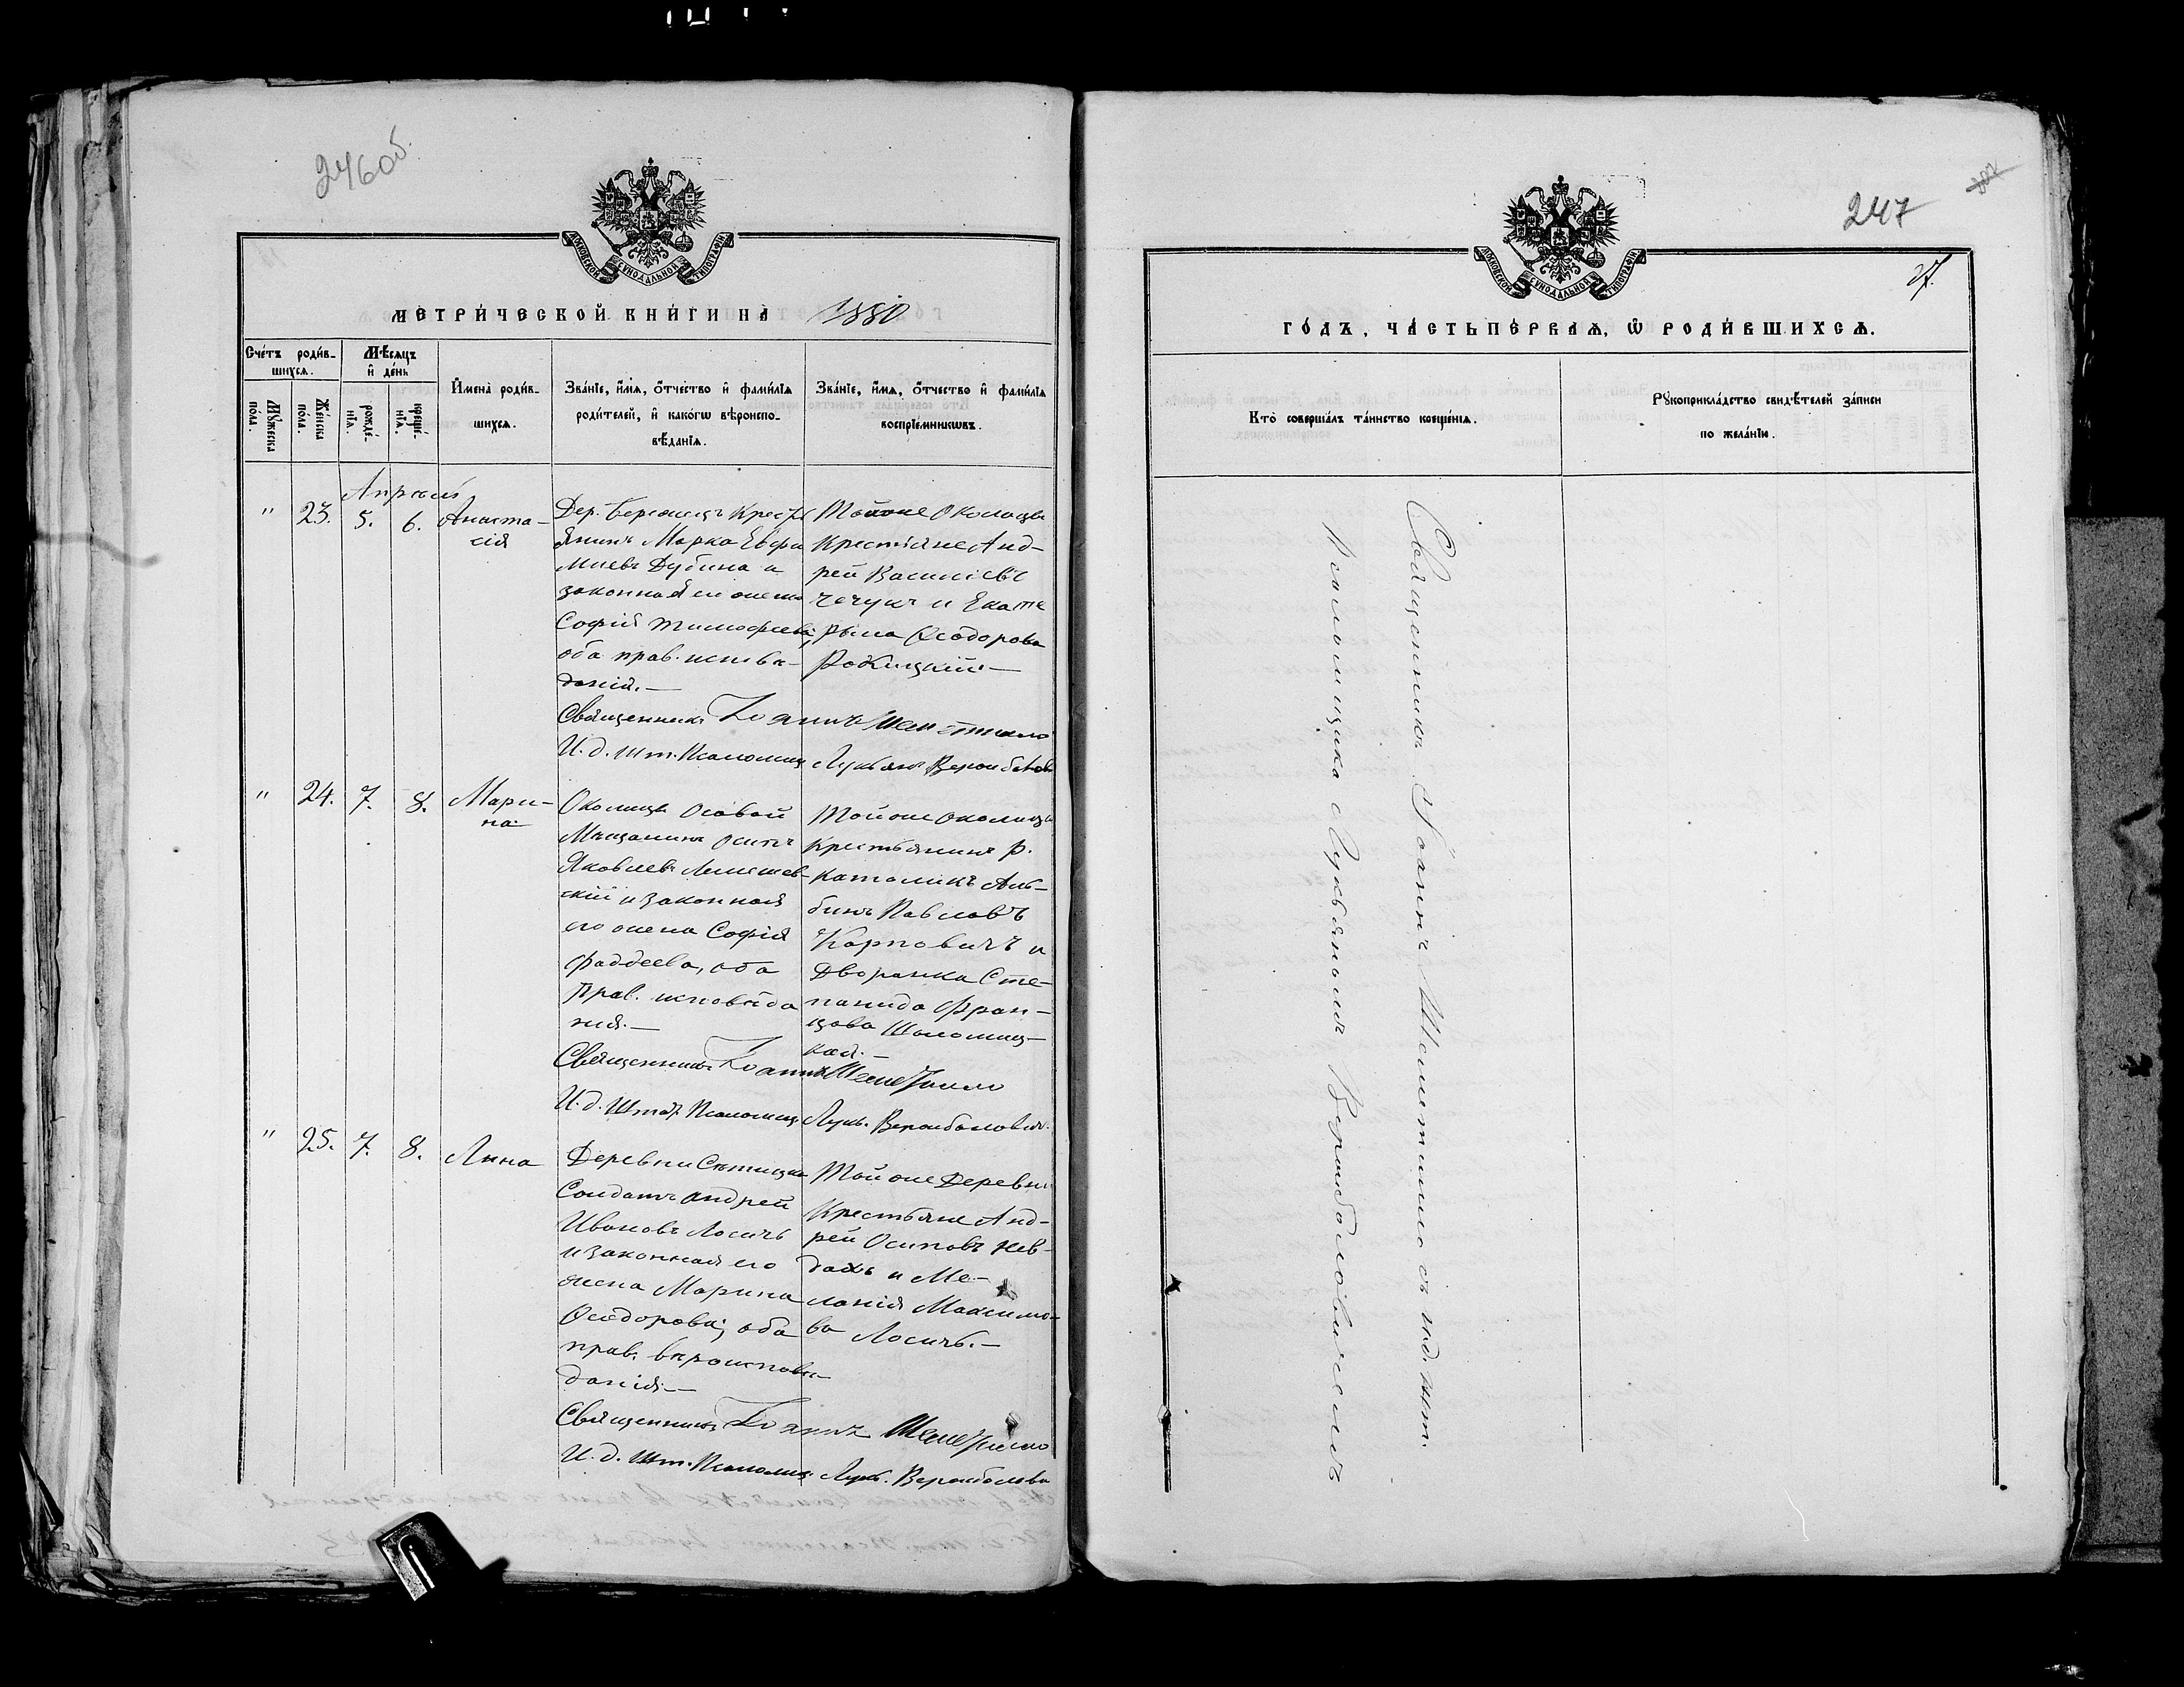 246об.
МОСКОВСКОЙ СУНОДАЛЬНОЙ ТИПОГРАФІИ
МЕТРИ́ЧЕСКОЙ КНИ́ГИ НА 1880
Сче́тъ роди́в-
шихся.
Мѣсяцъ
и҆ де́нь
Мꙋ́жеска
по́ла.
Же́нска
по́ла.
рожде́-
нїѧ.
креще́-
нїѧ.
И҆мена̀ роди́в-
шихсѧ.
Зва́нїе, и҆́мѧ, ѻ҆́тчество и҆ фамѝлїѧ
роди́телей, и҆ како́гѡ вѣроиспо-
вѣ́данїѧ.
Зва́нїе, и҆́мѧ, ѻ҆́тчество и҆ фамѝлїѧ
воспрїе́мникѡвъ.
Апрѣль
" 23. 5. 6. Анаста-
сія
Дер. Бережецъ Крест
янинъ Марко Евфи
міевъ Дубина и
законная его жена
Софія Тимофеева,
оба прав. исповѣ-
данія.—
Тойже Околицы
Крестьяне Анд-
рей Василіевъ
Чечукъ и Екате
рина Ѳеодорова
—
Священникъ Іоаннъ Шеметилло
И. д. шт. Псаломщ Лукьянъ
" 24. 7. 8. Мари-
на
Околицы Осовой
Мѣщанинъ Осипъ
Яковлевъ Лемешев-
скій и законная
его жена Софія
Фаддеева, оба
Прав. исповѣда
нія.—
Тойже околицы
Крестьянинъ Р.
Католикъ Аль-
бинъ Павловъ
Карповичъ и
Дворянка Сте-
панида Фран-
цова Шоломиц-
кая.—
Священникъ Іоаннъ Шеметилло
И. д. Штат. Псаломщ Лукь. Вержболовичъ.
" 25. 7. 8. Анна
Деревни Ситицка
Солдатъ Андрей
Ивановъ Лосичъ
и законная его
жена Марина
Ѳеодорова, оба
прав. вѣроисповѣ-
данія.—
Тойже Деревни
Крестьяне Анд-
рей Осиповъ Нев-
дахъ и Ме-
ланія Максимо-
ва Лосичъ.—
Священникъ Іоаннъ Шеметилло
И. д. шт. Псаломщ. Лукь. Вержболови
247
27.
МОСКОВСКОЙ СУНОДАЛЬНОЙ ТИПОГРАФІИ
ГО́ДЪ, ЧА́СТЬ ПЕ́РВАѦ, Ѡ҆ РОДИ́ВШИХСѦ.
Кто̀ соверша́лъ та́инство креще́нїѧ.
Рꙋкоприкла́дство свидѣ́телей за́писи
по жела́нїю.
Священникъ Іоаннъ Шеметилло съ и. д. шт.
псаломщика Лукьяномъ Вержболовичемъ